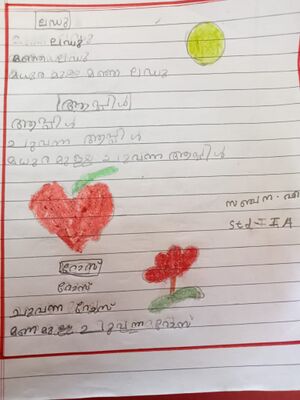 ലഡു
ലഡു
മഞ്ഞ ലഡു
മധുരമുള്ള മഞ്ഞ ലഡു
ആപ്പിൾ
ആപ്പിൾ
ചുവന്ന ആപ്പിൾ
മധുരമുള്ള ചുവന്ന ആപ്പിൾ
സഞ്ചന . എ
Std - II A
റോസ്
റോസ്
ചുവന്ന റോസ്
മണമുള്ള ചുവന്ന റോസ്